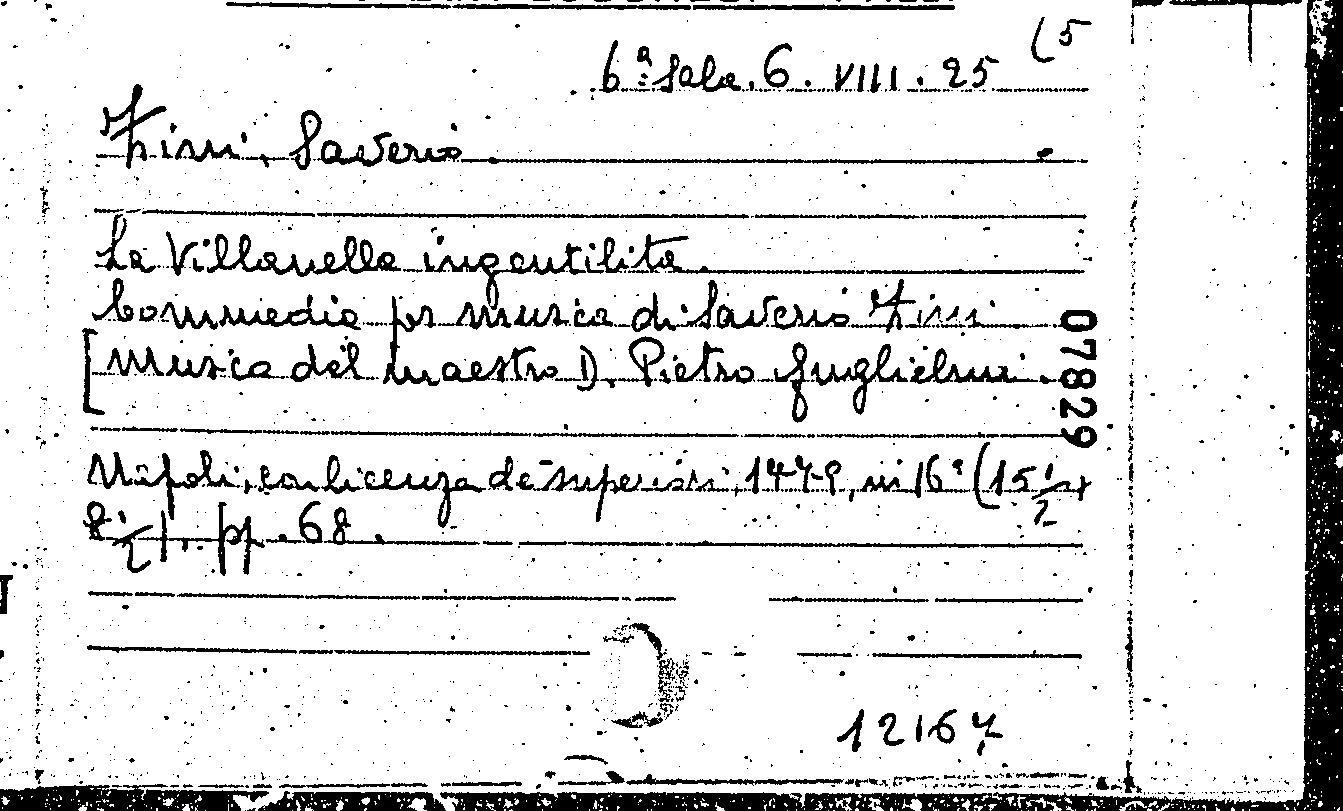 6ª Sala. 6. VIII. 25 (5
Zini, Saverio.
La Villanella ingentilita.
Commedia per musica di Saverio Zini.
[Musica del maestro D. Pietro Guglielmi.
07829
Napoli, con licenza de' superiori, 1779, in 16° (15 1/2 x
8 1/2), pp. 68.
12167